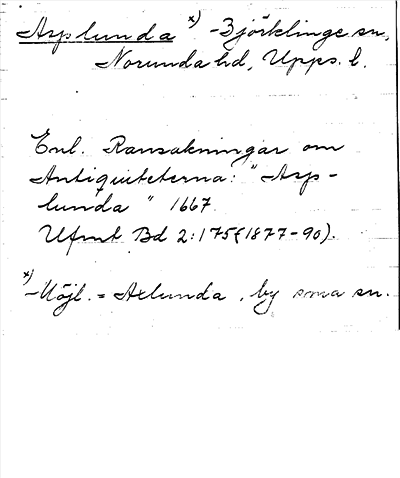 Asplunda x) - Björklinge sn,
Norunda hd, Upps. l.
Enl. Ransakningar om
Antiquiteterna: "Asp-
lunda" 1667
Ufmt Bd 2:175 (1877-90).
x) - Möjl. = Axlunda, by soma sn.